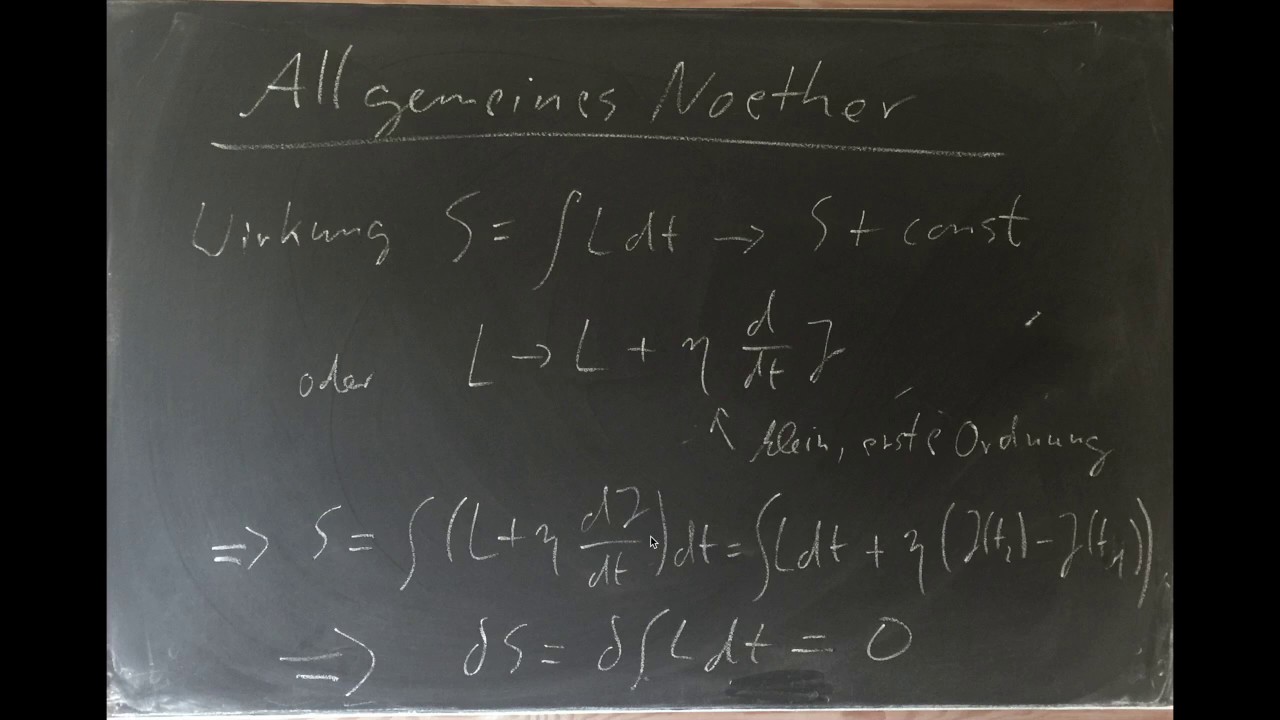 Allgemeines Noether
Wirkung S = ∫ L dt → S + const
oder L → L + η d/dt J
↑ klein, erste Ordnung
⇒ S = ∫ (L + η dJ/dt) dt = ∫ L dt + η (J(t₂) − J(t₁))
⇒ δS = δ∫ L dt = 0